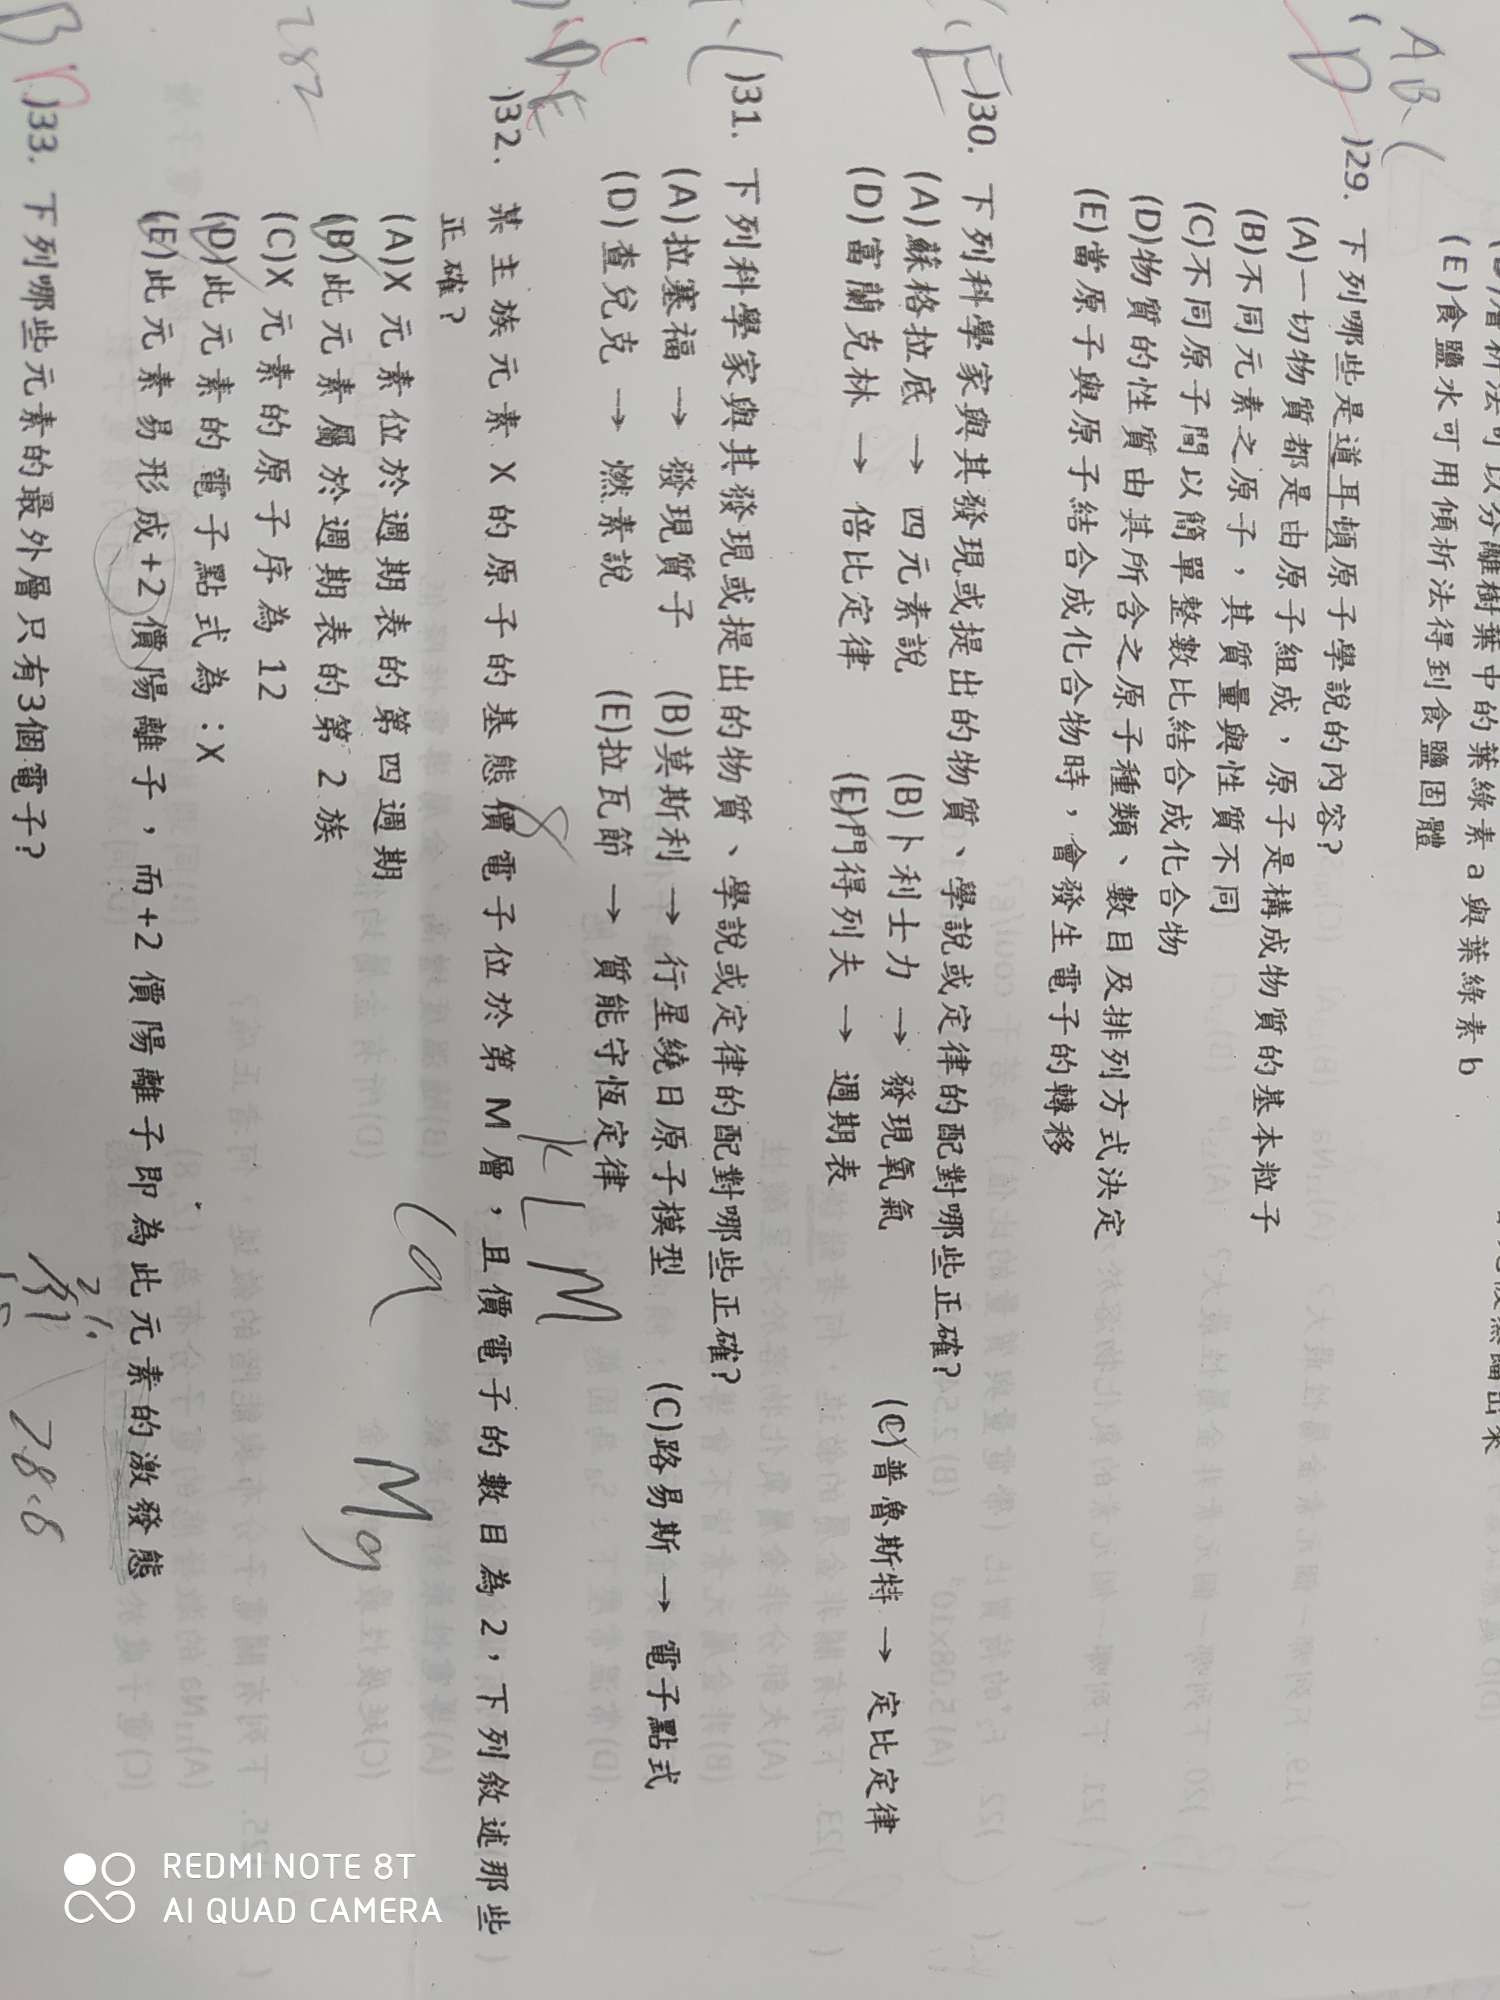 (E)食鹽水可用傾析法得到食鹽固體
)29. 下列哪些是道耳頓原子學說的內容?
(A)一切物質都是由原子組成，原子是構成物質的基本粒子
(B)不同元素之原子，其質量與性質不同
(C)不同原子間以簡單整數比結合成化合物
(D)物質的性質由其所含之原子種類、數目及排列方式決定
(E)當原子與原子結合成化合物時，會發生電子的轉移
)30. 下列科學家與其發現或提出的物質、學說或定律的配對哪些正確?
(A)蘇格拉底 → 四元素說 (B)卜利士力 → 發現氧氣 (C)普魯斯特 → 定比定律
(D)富蘭克林 → 倍比定律 (E)門得列夫 → 週期表
)31. 下列科學家與其發現或提出的物質、學說或定律的配對哪些正確?
(A)拉塞福 → 發現質子 (B)莫斯利 → 行星繞日原子模型 (C)路易斯 → 電子點式
(D)查兌克 → 燃素說 (E)拉瓦節 → 質能守恆定律
K L M
)32. 某主族元素 X 的原子的基態價電子位於第 M 層，且價電子的數目為 2，下列敘述那些
正確?
(A)X 元素位於週期表的第四週期
Ca
(B)此元素屬於週期表的第 2 族
Mg
(C)X 元素的原子序為 12
282
(D)此元素的電子點式為：X
(E)此元素易形成+2 價陽離子，而+2 價陽離子即為此元素的激發態
)33. 下列哪些元素的最外層只有3個電子?
REDMI NOTE 8T
AI QUAD CAMERA